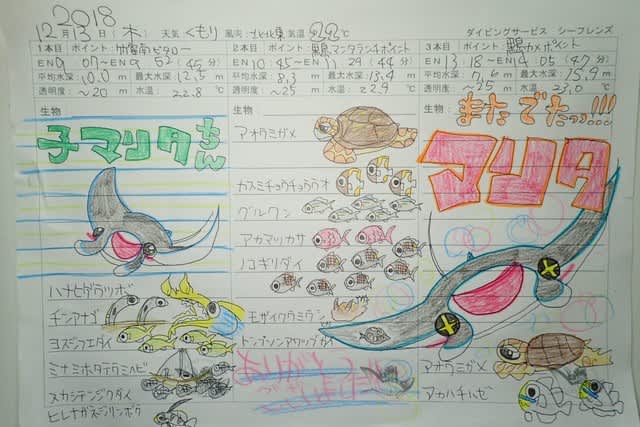 2018
12月13日(木) 天気 くもり 風向 北北東 気温 22℃ ダイビングサービス シーフレンズ
1本目 ポイント 竹富南ビタロー
EN 9 07〜EN 9 52 (45分)
平均水深 10.0m 最大水深 12.5m
透明度 〜20m 水温 22.8℃
生物
子マンタちん
ハナヒゲウツボ
チンアナゴ
ヨスジフエダイ
ミナミホタテウミヘビ
スカシテンジクダイ
ヒレナガネジリンボウ
2本目 ポイント 黒島マンタランチポイント
EN 10 45〜EN 11 29 (44分)
平均水深 8.3m 最大水深 13.4m
透明度 〜25m 水温 22.9℃
生物
アオウミガメ
カスミチョウチョウウオ
グルクン
アカマツカサ
ノコギリダイ
モザイクウミウシ
トンプソンアワツブガイ
3本目 ポイント 黒島カメポイント
EN 13 18〜EN 14 05 (47分)
平均水深 7.6m 最大水深 15.9m
透明度 〜25m 水温 23.0℃
生物
またでたっっ!!!
マンタ
アオウミガメ
アカハチハゼ